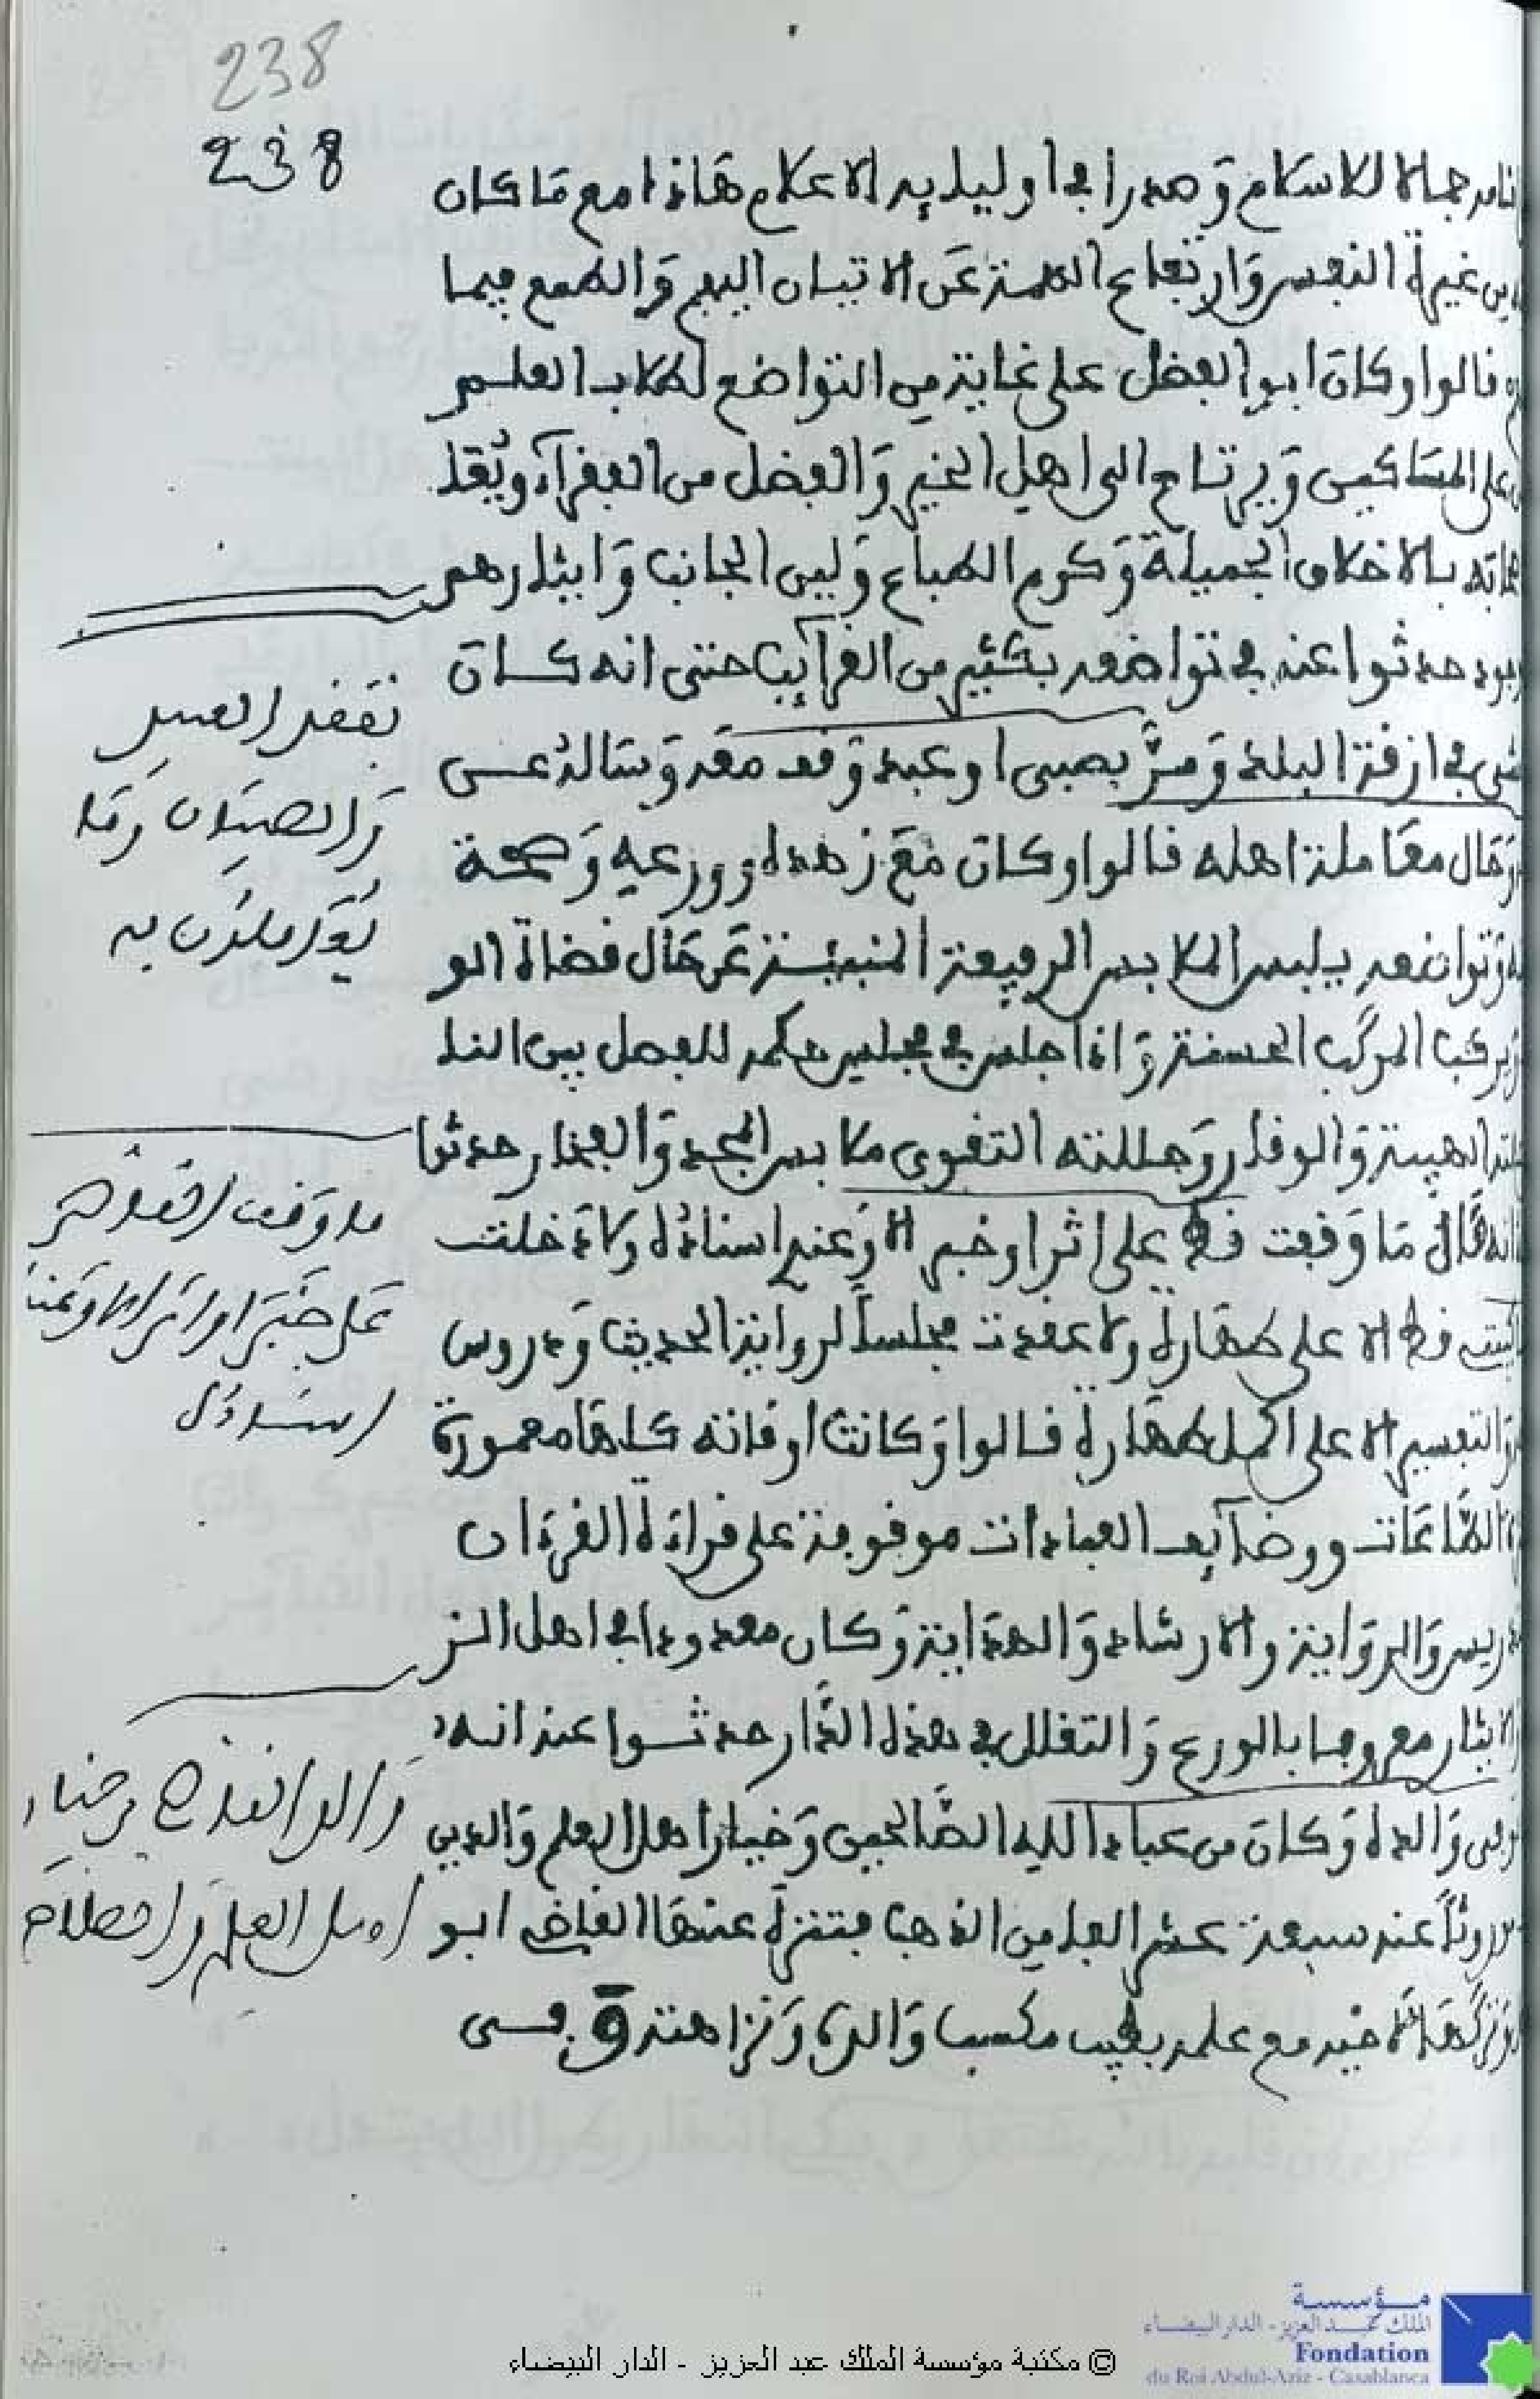 238
238
جمالا للاسلام وصدرا في اوليايه الاعلام هاذا مع ما كان
غيرة النفس وارتفاع الهمة عن الاتيان اليهم والطمع فيما
قالوا وكان ابو الفضل على غاية من التواضع لطلاب العلم
على المساكين ويرتاح الى اهل الخير والفضل من الفقرآء ويقد
بالاخلاق الجميلة وكرم الطباع ولين الجانب وايثارهم
حدثوا عنه في تواضعه بكثير من الغرآيب حتى انه كان
في ازقة البلد ومرَّ بصبي او عبد وقف معه وساله عن
وحال معاملة اهله قالوا وكان مع زهده وورعه وصحة
وتواضعه يلبس الملابس الرفيعة المنبئة عن حال قضاة الو
ويركب المركب الحسنة واذا جلس في مجلس حكمه للفصل بين النا
الهيبة والوقار وجللته التقوى ملابس المجد والفخار حدثوا
انه قال ما وقفت قط على اثر او خبر الا وعندي اسناده ولا دخلت
قط الا على طهارة ولا عقدت مجلساً لرواية الحديث ودروس
والتفسير الا على اكمل طهارة قالوا وكانت اوقاته كلها معمورة
الطاعات ووضآيف العبادات موقوفة على قراءة القرءان
والرواية والارشاد والهداية وكان معدودا في اهل الز
الايثار معروفا بالورع والتقلل في هذه الدار حدثوا عنه انه
والده وكان من عباد الله الصالحين وخيار اهل العلم والدين
عنه سبعة عشر الفا من الذهب فتنزه عنها القاضي ابو
وتركها لاخيه مع علمه بطيب مكسب والده ونزاهته ق. فسى
تفقد العبيد
والصبيان وما
يعاملون به
ما وقفت قط
على خبر او اثر الا وعند
اسناده
والد القاضي خيار
اهل العلم والصلاح
© مكتبة مؤسسة الملك عبد العزيز - الدار البيضاء
مؤسسة
الملك عبد العزيز - الدار البيضاء
Fondation
du Roi Abdul-Aziz - Casablanca